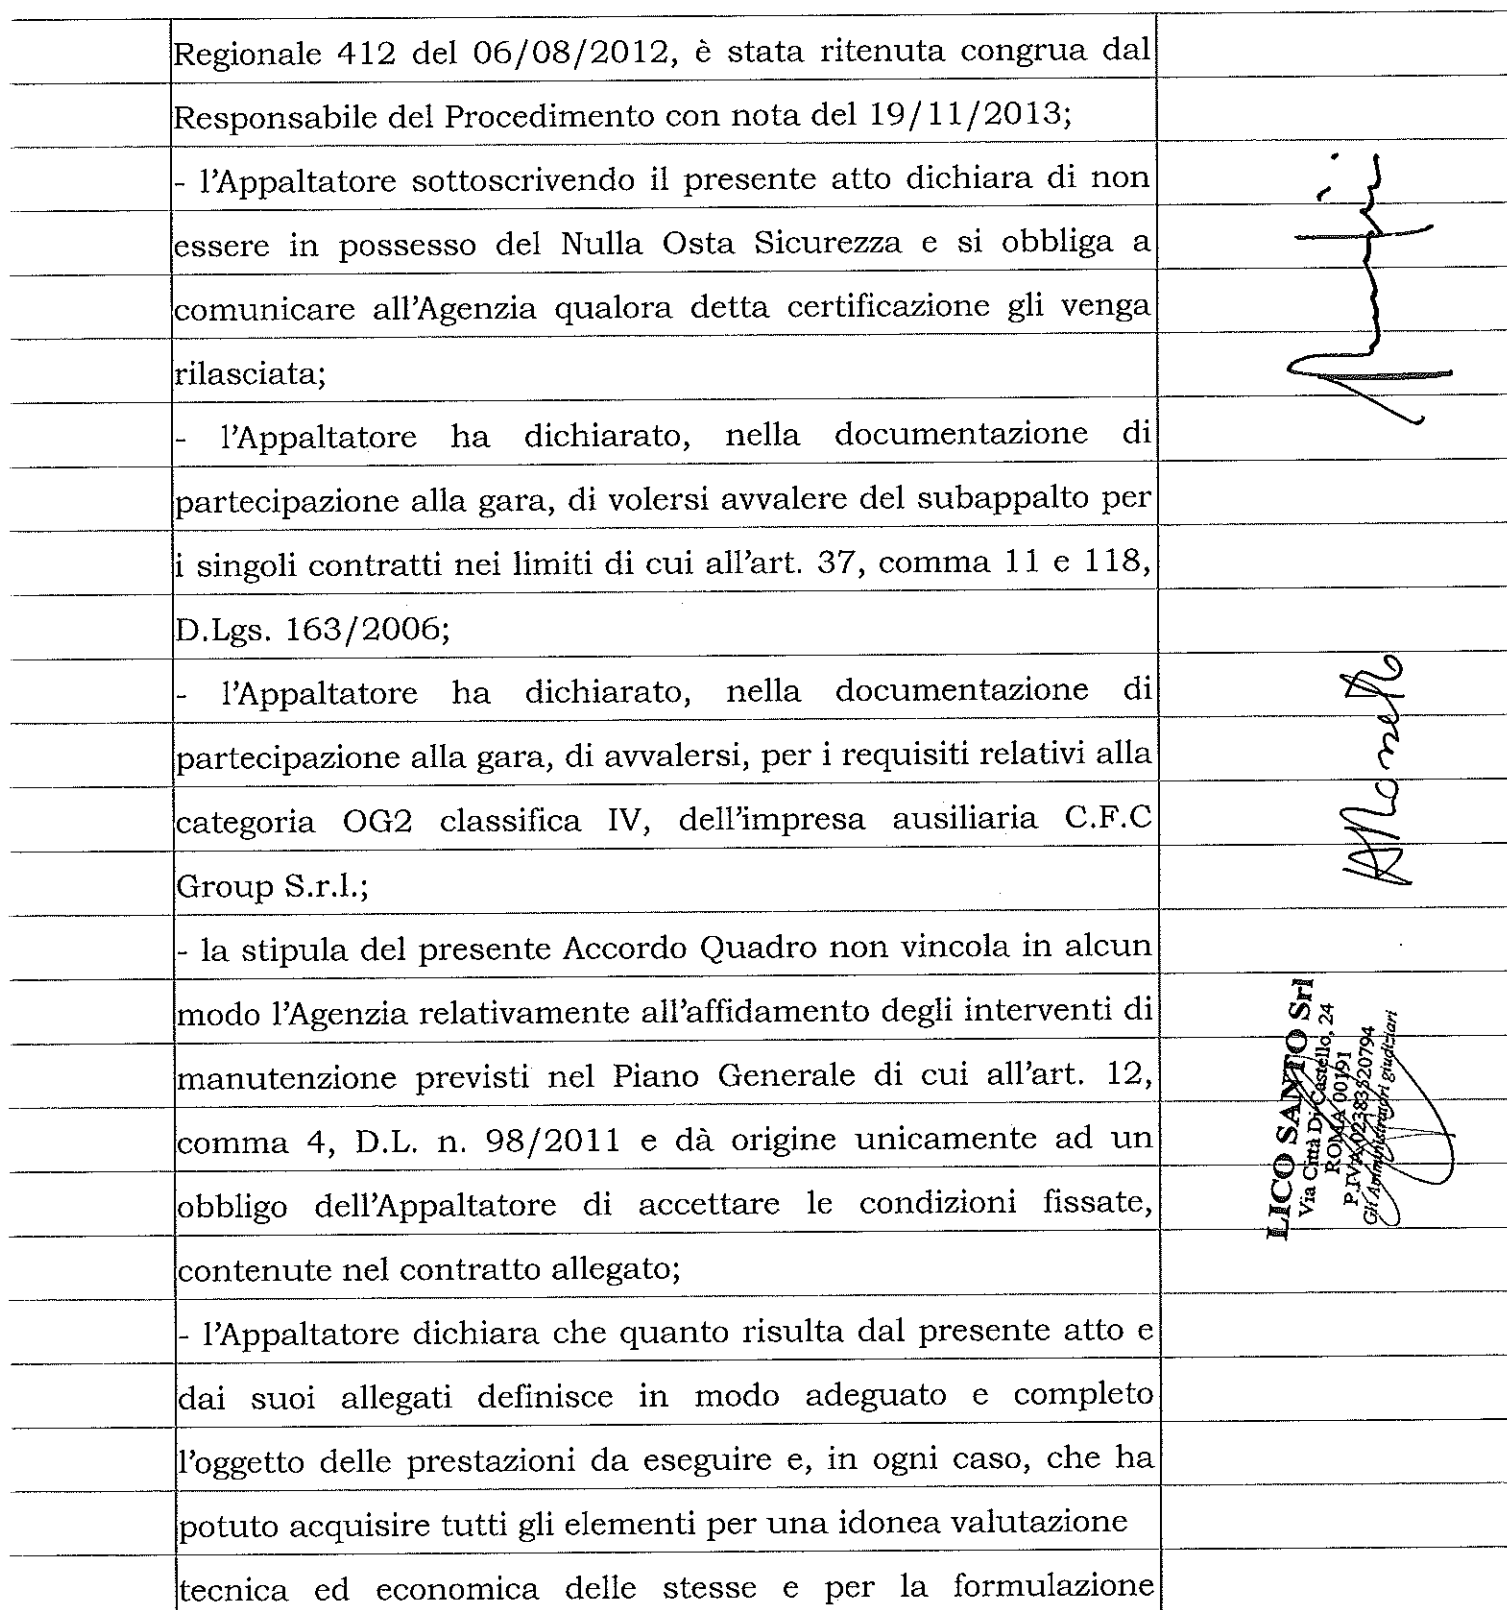 Regionale 412 del 06/08/2012, è stata ritenuta congrua dal
Responsabile del Procedimento con nota del 19/11/2013;
- l'Appaltatore sottoscrivendo il presente atto dichiara di non
essere in possesso del Nulla Osta Sicurezza e si obbliga a
comunicare all'Agenzia qualora detta certificazione gli venga
rilasciata;
- l'Appaltatore ha dichiarato, nella documentazione di
partecipazione alla gara, di volersi avvalere del subappalto per
i singoli contratti nei limiti di cui all'art. 37, comma 11 e 118,
D.Lgs. 163/2006;
- l'Appaltatore ha dichiarato, nella documentazione di
partecipazione alla gara, di avvalersi, per i requisiti relativi alla
categoria OG2 classifica IV, dell'impresa ausiliaria C.F.C
Group S.r.l.;
- la stipula del presente Accordo Quadro non vincola in alcun
modo l'Agenzia relativamente all'affidamento degli interventi di
manutenzione previsti nel Piano Generale di cui all'art. 12,
comma 4, D.L. n. 98/2011 e dà origine unicamente ad un
obbligo dell'Appaltatore di accettare le condizioni fissate,
contenute nel contratto allegato;
- l'Appaltatore dichiara che quanto risulta dal presente atto e
dai suoi allegati definisce in modo adeguato e completo
l'oggetto delle prestazioni da eseguire e, in ogni caso, che ha
potuto acquisire tutti gli elementi per una idonea valutazione
tecnica ed economica delle stesse e per la formulazione
LICO SANTO Srl
Via Città Di Castello, 24
ROMA 00191
P.IVA 02383520794
Gli Amministratori giudiziari